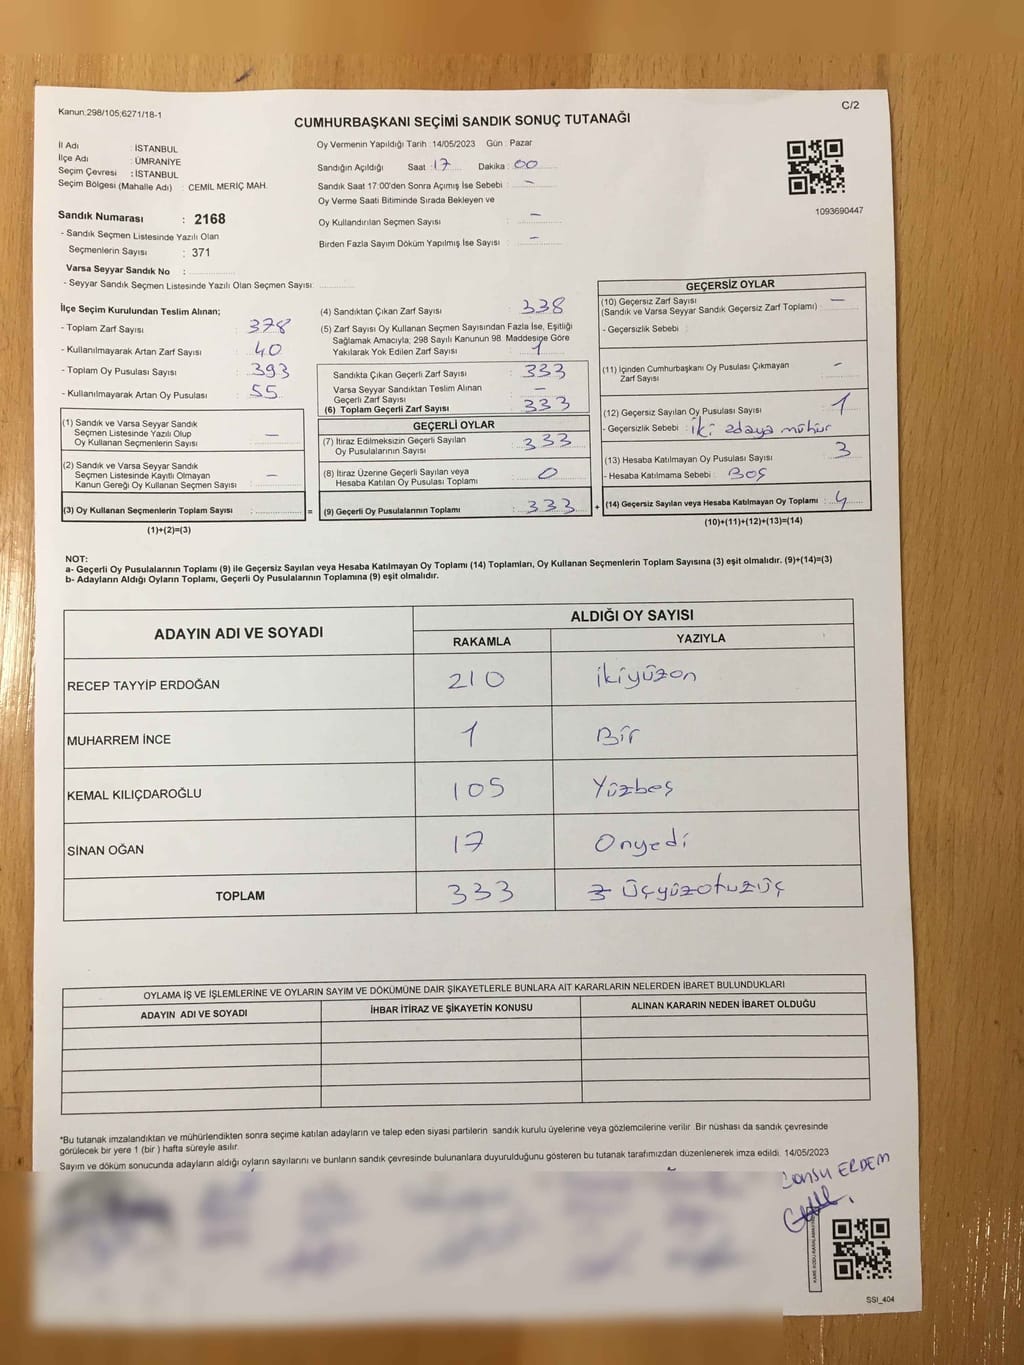 Kanun.298/105,6271/18-1
C/2
CUMHURBAŞKANI SEÇİMİ SANDIK SONUÇ TUTANAĞI
İl Adı : İSTANBUL
İlçe Adı : ÜMRANİYE
Seçim Çevresi : İSTANBUL
Seçim Bölgesi (Mahalle Adı) : CEMİL MERİÇ MAH.
Sandık Numarası : 2168
- Sandık Seçmen Listesinde Yazılı Olan
Seçmenlerin Sayısı : 371
Varsa Seyyar Sandık No :
- Seyyar Sandık Seçmen Listesinde Yazılı Olan Seçmen Sayısı:
Oy Vermenin Yapıldığı Tarih : 14/05/2023 Gün : Pazar
Sandığın Açıldığı Saat : 17 Dakika : 00
Sandık Saat 17:00'den Sonra Açımış İse Sebebi : -
Oy Verme Saati Bitiminde Sırada Bekleyen ve
Oy Kullandırılan Seçmen Sayısı : -
Birden Fazla Sayım Döküm Yapılmış İse Sayısı : -
1093690447
İlçe Seçim Kurulundan Teslim Alınan;
- Toplam Zarf Sayısı : 378
- Kullanılmayarak Artan Zarf Sayısı : 40
- Toplam Oy Pusulası Sayısı : 393
- Kullanılmayarak Artan Oy Pusulası : 55
(1) Sandık ve Varsa Seyyar Sandık
Seçmen Listesinde Yazılı Olup
Oy Kullanan Seçmenlerin Sayısı : -
(2) Sandık ve Varsa Seyyar Sandık
Seçmen Listesinde Kayıtlı Olmayan
Kanun Gereği Oy Kullanan Seçmen Sayısı : -
(3) Oy Kullanan Seçmenlerin Toplam Sayısı : =
(1)+(2)=(3)
(4) Sandıktan Çıkan Zarf Sayısı : 338
(5) Zarf Sayısı Oy Kullanan Seçmen Sayısından Fazla İse, Eşitliği
Sağlamak Amacıyla, 298 Sayılı Kanunun 98. Maddesine Göre
Yakılarak Yok Edilen Zarf Sayısı : 1
Sandıkta Çıkan Geçerli Zarf Sayısı : 333
Varsa Seyyar Sandıktan Teslim Alınan
Geçerli Zarf Sayısı : -
(6) Toplam Geçerli Zarf Sayısı : 333
GEÇERLİ OYLAR
(7) İtiraz Edilmeksizin Geçerli Sayılan
Oy Pusulalarının Sayısı : 333
(8) İtiraz Üzerine Geçerli Sayılan veya
Hesaba Katılan Oy Pusulası Toplamı : 0
(9) Geçerli Oy Pusulalarının Toplamı : 333 +
GEÇERSİZ OYLAR
(10) Geçersiz Zarf Sayısı : -
(Sandık ve Varsa Seyyar Sandık Geçersiz Zarf Toplamı) :
- Geçersizlik Sebebi :
(11) İçinden Cumhurbaşkanı Oy Pusulası Çıkmayan
Zarf Sayısı : -
(12) Geçersiz Sayılan Oy Pusulası Sayısı : 1
- Geçersizlik Sebebi : iki adaya mühür
(13) Hesaba Katılmayan Oy Pusulası Sayısı : 3
- Hesaba Katılmama Sebebi : Boş
(14) Geçersiz Sayılan veya Hesaba Katılmayan Oy Toplamı : 4
(10)+(11)+(12)+(13)=(14)
NOT:
a- Geçerli Oy Pusulalarının Toplamı (9) ile Geçersiz Sayılan veya Hesaba Katılmayan Oy Toplamı (14) Toplamları, Oy Kullanan Seçmenlerin Toplam Sayısına (3) eşit olmalıdır. (9)+(14)=(3)
b- Adayların Aldığı Oyların Toplamı, Geçerli Oy Pusulalarının Toplamına (9) eşit olmalıdır.
ADAYIN ADI VE SOYADI
ALDIĞI OY SAYISI
RAKAMLA YAZIYLA
RECEP TAYYİP ERDOĞAN 210 ikiyüzon
MUHARREM İNCE 1 Bir
KEMAL KILIÇDAROĞLU 105 Yüzbeş
SİNAN OĞAN 17 Onyedi
TOPLAM 333 üçyüzotuzüç
OYLAMA İŞ VE İŞLEMLERİNE VE OYLARIN SAYIM VE DÖKÜMÜNE DAİR ŞİKAYETLERLE BUNLARA AİT KARARLARIN NELERDEN İBARET BULUNDUKLARI
ADAYIN ADI VE SOYADI İHBAR İTİRAZ VE ŞİKAYETİN KONUSU ALINAN KARARIN NEDEN İBARET OLDUĞU
*Bu tutanak imzalandıktan ve mühürlendikten sonra seçime katılan adayların ve talep eden siyasi partilerin sandık kurulu üyelerine veya gözlemcilerine verilir. Bir nüshası da sandık çevresinde
görülecek bir yere 1 (bir) hafta süreyle asılır.
Sayım ve döküm sonucunda adayların aldığı oyların sayılarını ve bunların sandık çevresinde bulunanlara duyurulduğunu gösteren bu tutanak tarafımızdan düzenlenerek imza edildi. 14/05/2023
Cansu ERDEM
SSİ_404